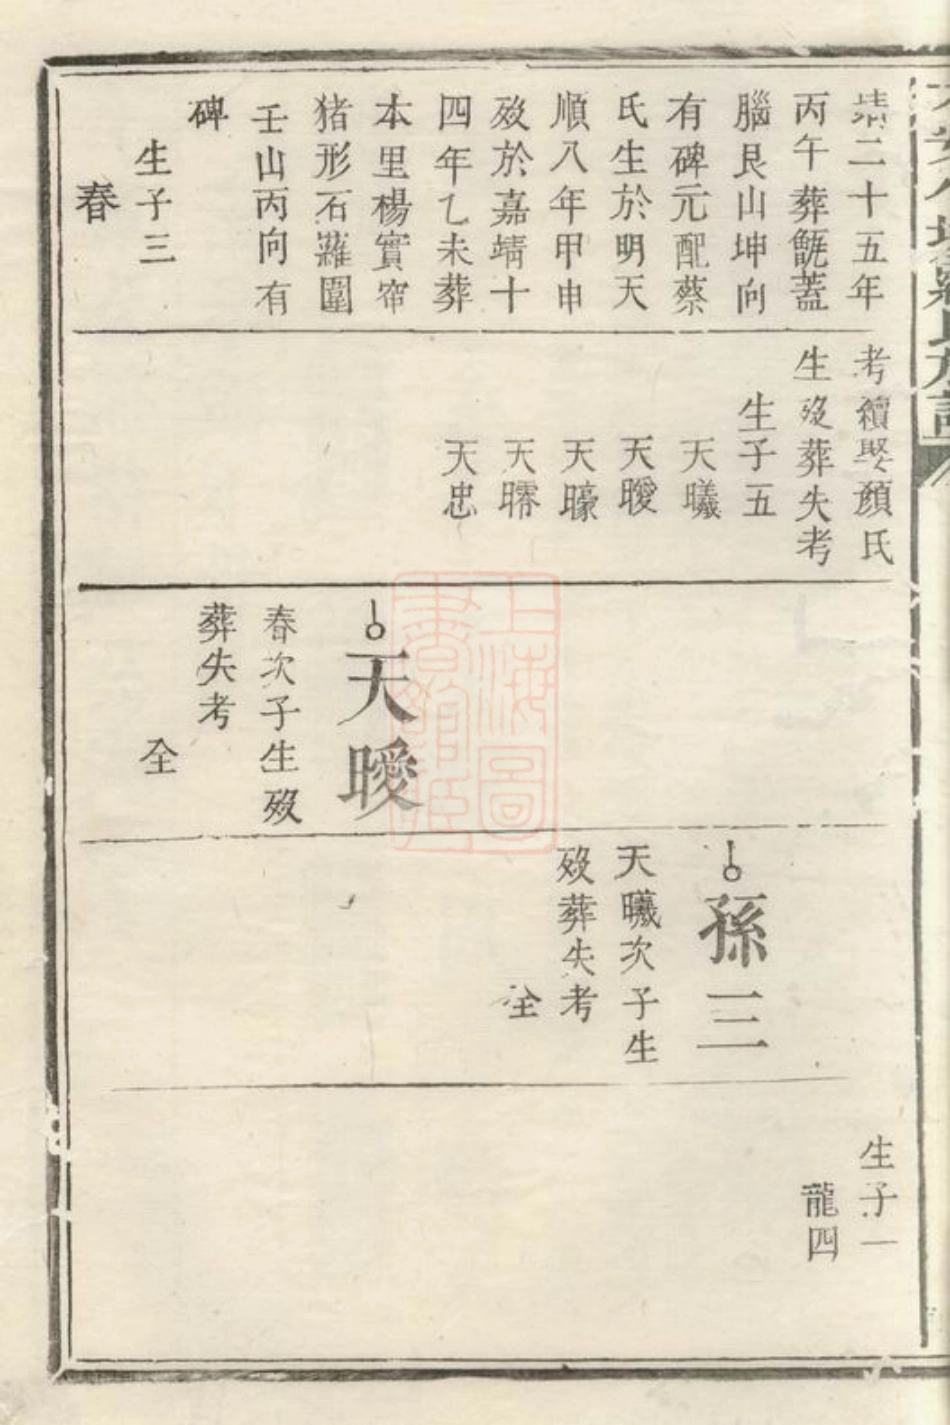 靖二十五年
丙午葬甑蓋
腦艮山坤向
有碑元配蔡
氏生於明天
順八年甲申
歿於嘉靖十
四年乙未葬
本里楊實窩
猪形石蘿圍
壬山丙向有
碑
生子三
春
考續娶顏氏
生歿葬失考
生子五
天曦
天曖
天㬶
天㬡
天忠
天曖
春次子生歿
葬失考
仝
孫三
天曦次子生
歿葬失考
仝
生子一
龍四
上海圖
書館藏